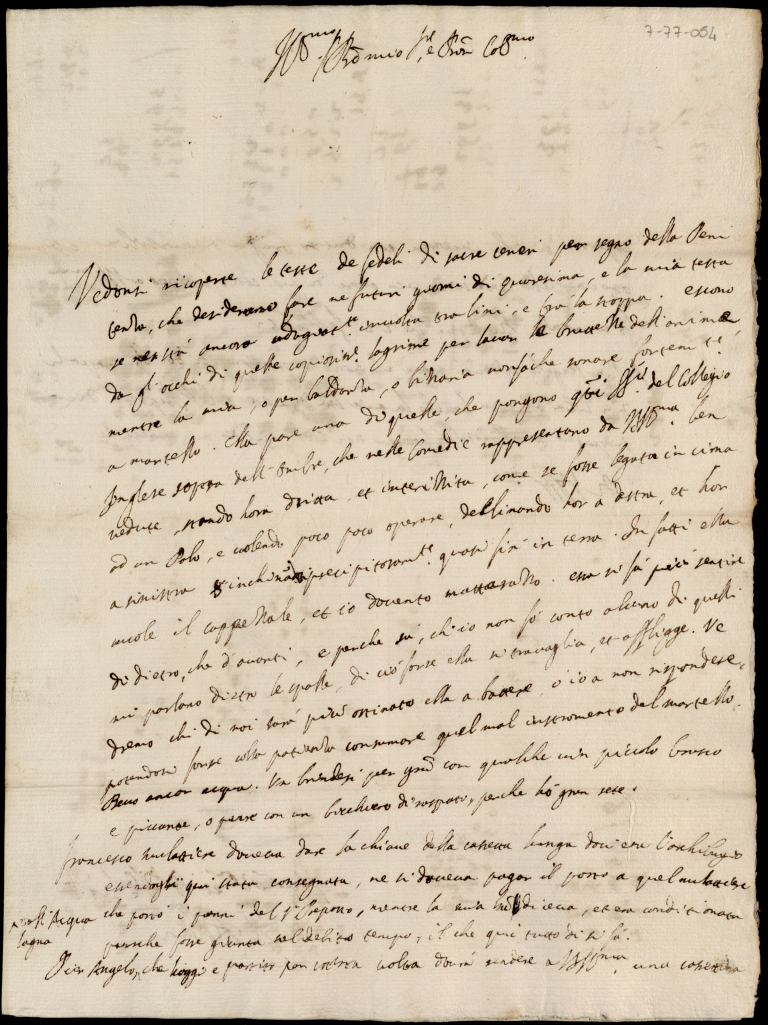 7-77-054
Ill.mo Sig.r mio S.r e Pron Col.mo
Vedonsi ricoperte le teste de fedeli di sacre ceneri per segno della Peni
tenza, che desiderano fare ne futuri giorni di quaresima, e la mia testa
se ne stà ancora involta tra lini, e tra la stoppa. escono
da gl'occhi di quelle copiosiss.e lagrime per lavar le brutte dell'anima
mentre la mia, o per baldanza, o bizzaria non fà che sonare fortem.te
a martello. Ma pare una di quelle, che pongono q.ti SS.ri del Collegio
Inglese sopra dell'ombre, che nelle Comedie rappresentano da V.S. Ill.ma ben
vedute, stando hora dritta, et interissita, come se fosse legata in cima
ad un Palo, e volendo poco poco operare, declinando hor a destra, et hor
a sinistra inchinarsi precipitosam.te quasi sin in terra. In fatti ella
vuole il cappellale, et io divento mattarello. essa si fà più sentire
di dietro, che d'avanti, e perche sà, ch'io non fò conto alcuno di quelli
mi parlano dietro le spalle, di ciò forse ella si travaglia, et affligge. Ve
dremo chi di noi sarà più ostinato ella a battere, o io a non rispondere,
potendosi forse colla patienza consumare quel mal instromento del martello.
Bevo ancor acqua. Un brindesi per con qualche vin piccolo brusco
e piccante, o pure con un bicchiero di sorpato, perche hò gran sete.
Francesco mulattiere doveva dare la chiave della cassetta lunga dov'era l'archibugio
essendogli qui stata consegnata, ne si doveva pagar il porto a quel mulattiere
dell'Acqua che portò i panni del S.r Preposto, mentre la sua diceva, et era conditionata
lagna
purche fosse giunta nel debito tempo, il che qui tutto dì si fà.
Pier Angelo, che hoggi è partito per costesta volta dovrà rendere a V.S. Ill.ma una cassettina